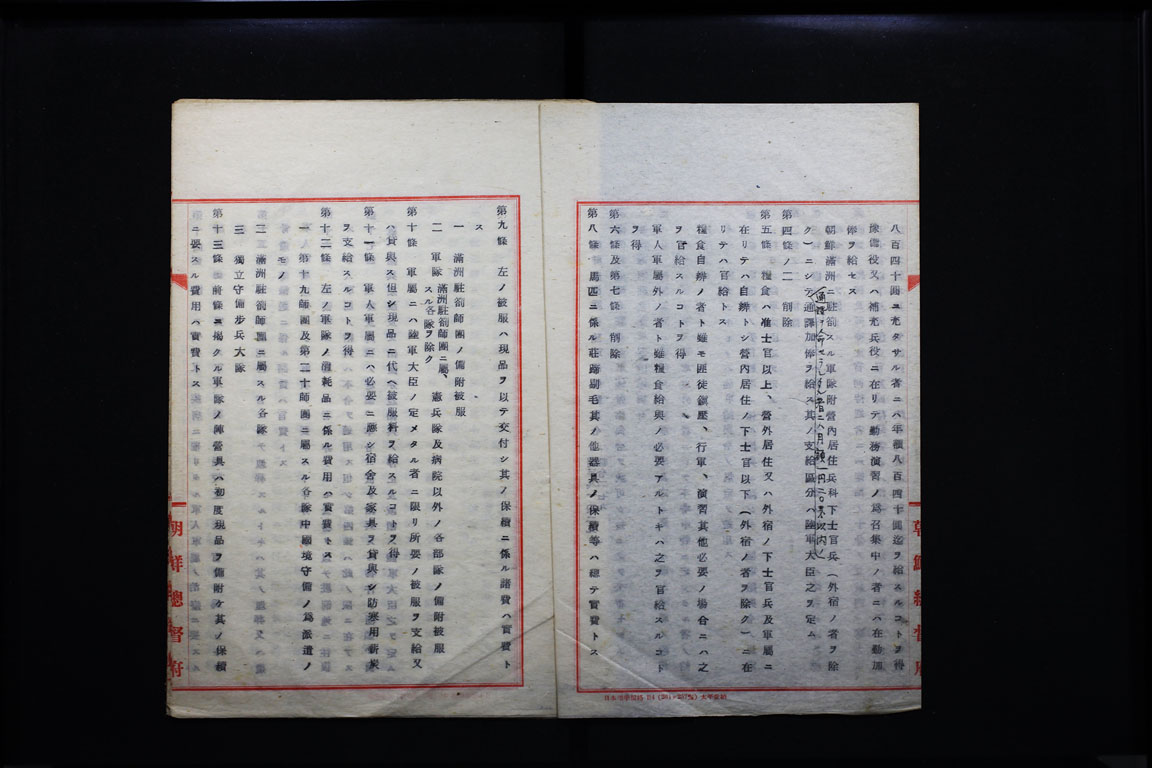 八百四十圓ニ充タサル者ニハ年額八百四十圓迄ヲ給スルコトヲ得
豫備役又ハ補充兵役ニ在リテ勤務演習ノ爲召集中ノ者ニハ在勤加
俸ヲ給セス
朝鮮滿洲ニ駐箚スル軍隊附營內居住兵科下士官兵(外宿ノ者ヲ除
ク)ニシテ通譯ヲ命セラレタル者ニハ月額一円二〇錢以内ノ通譯加俸ヲ給ス其ノ支給區分ハ陸軍大臣之ヲ定ム
第四條ノ二 削除
第五條 糧食ハ准士官以上、營外居住又ハ外宿ノ下士官兵及軍屬ニ
在リテハ自辨トシ營內居住ノ下士官以下(外宿ノ者ヲ除ク)ニ在
リテハ官給トス
糧食自辨ノ者ト雖モ匪徒鎭壓、行軍、演習其他必要ノ場合ニハ之
ヲ官給スルコトヲ得
軍人軍屬外ノ者ト雖糧食給與ノ必要アルトキハ之ヲ官給スルコト
ヲ得
第六條及第七條 削除
第八條 馬匹ニ係ル裝蹄剔毛其ノ他器具ノ保續等ハ總テ實費トス
第九條 左ノ被服ハ現品ヲ以テ交付シ其ノ保續ニ係ル諸費ハ實費ト
ス
一 滿洲駐箚師團ノ備附被服
二 軍隊(滿洲駐箚師團ニ屬スル各隊ヲ除ク)、憲兵隊及病院以外ノ各部隊ノ備附被服
第十條 軍屬ニハ陸軍大臣ノ定メタル者ニ限リ所要ノ被服ヲ支給又
ハ貸與ス但シ現品ニ代ヘ被服料ヲ給スルコトヲ得
第十一條 軍人軍屬ニハ必要ニ應シ宿舍及家具ヲ貸與シ防寒用薪炭
ヲ支給スルコトヲ得
第十二條 左ノ軍隊ノ消耗品ニ係ル費用ハ實費トス
一 第十九師團及第二十師團ニ屬スル各隊中國境守備ノ爲派遣ノ
モノ
二 滿洲駐箚師團ニ屬スル各隊
三 獨立守備步兵大隊
第十三條 前條ニ揭クル軍隊ノ陣營具ハ初度現品ヲ備附ケ其ノ保續
ニ要スル費用ハ實費トス
朝鮮總督府
朝鮮總督府